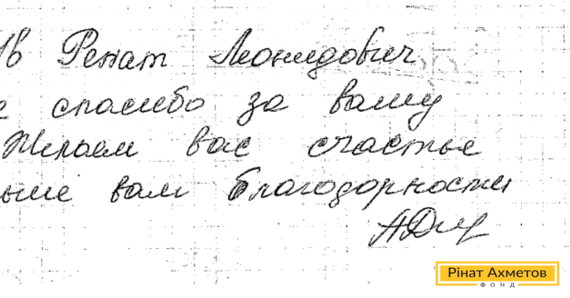 Ренат Леонидович
спасибо за вашу
Желаем вас счастье
вам благодорности
Рінат Ахметов
ФОНД